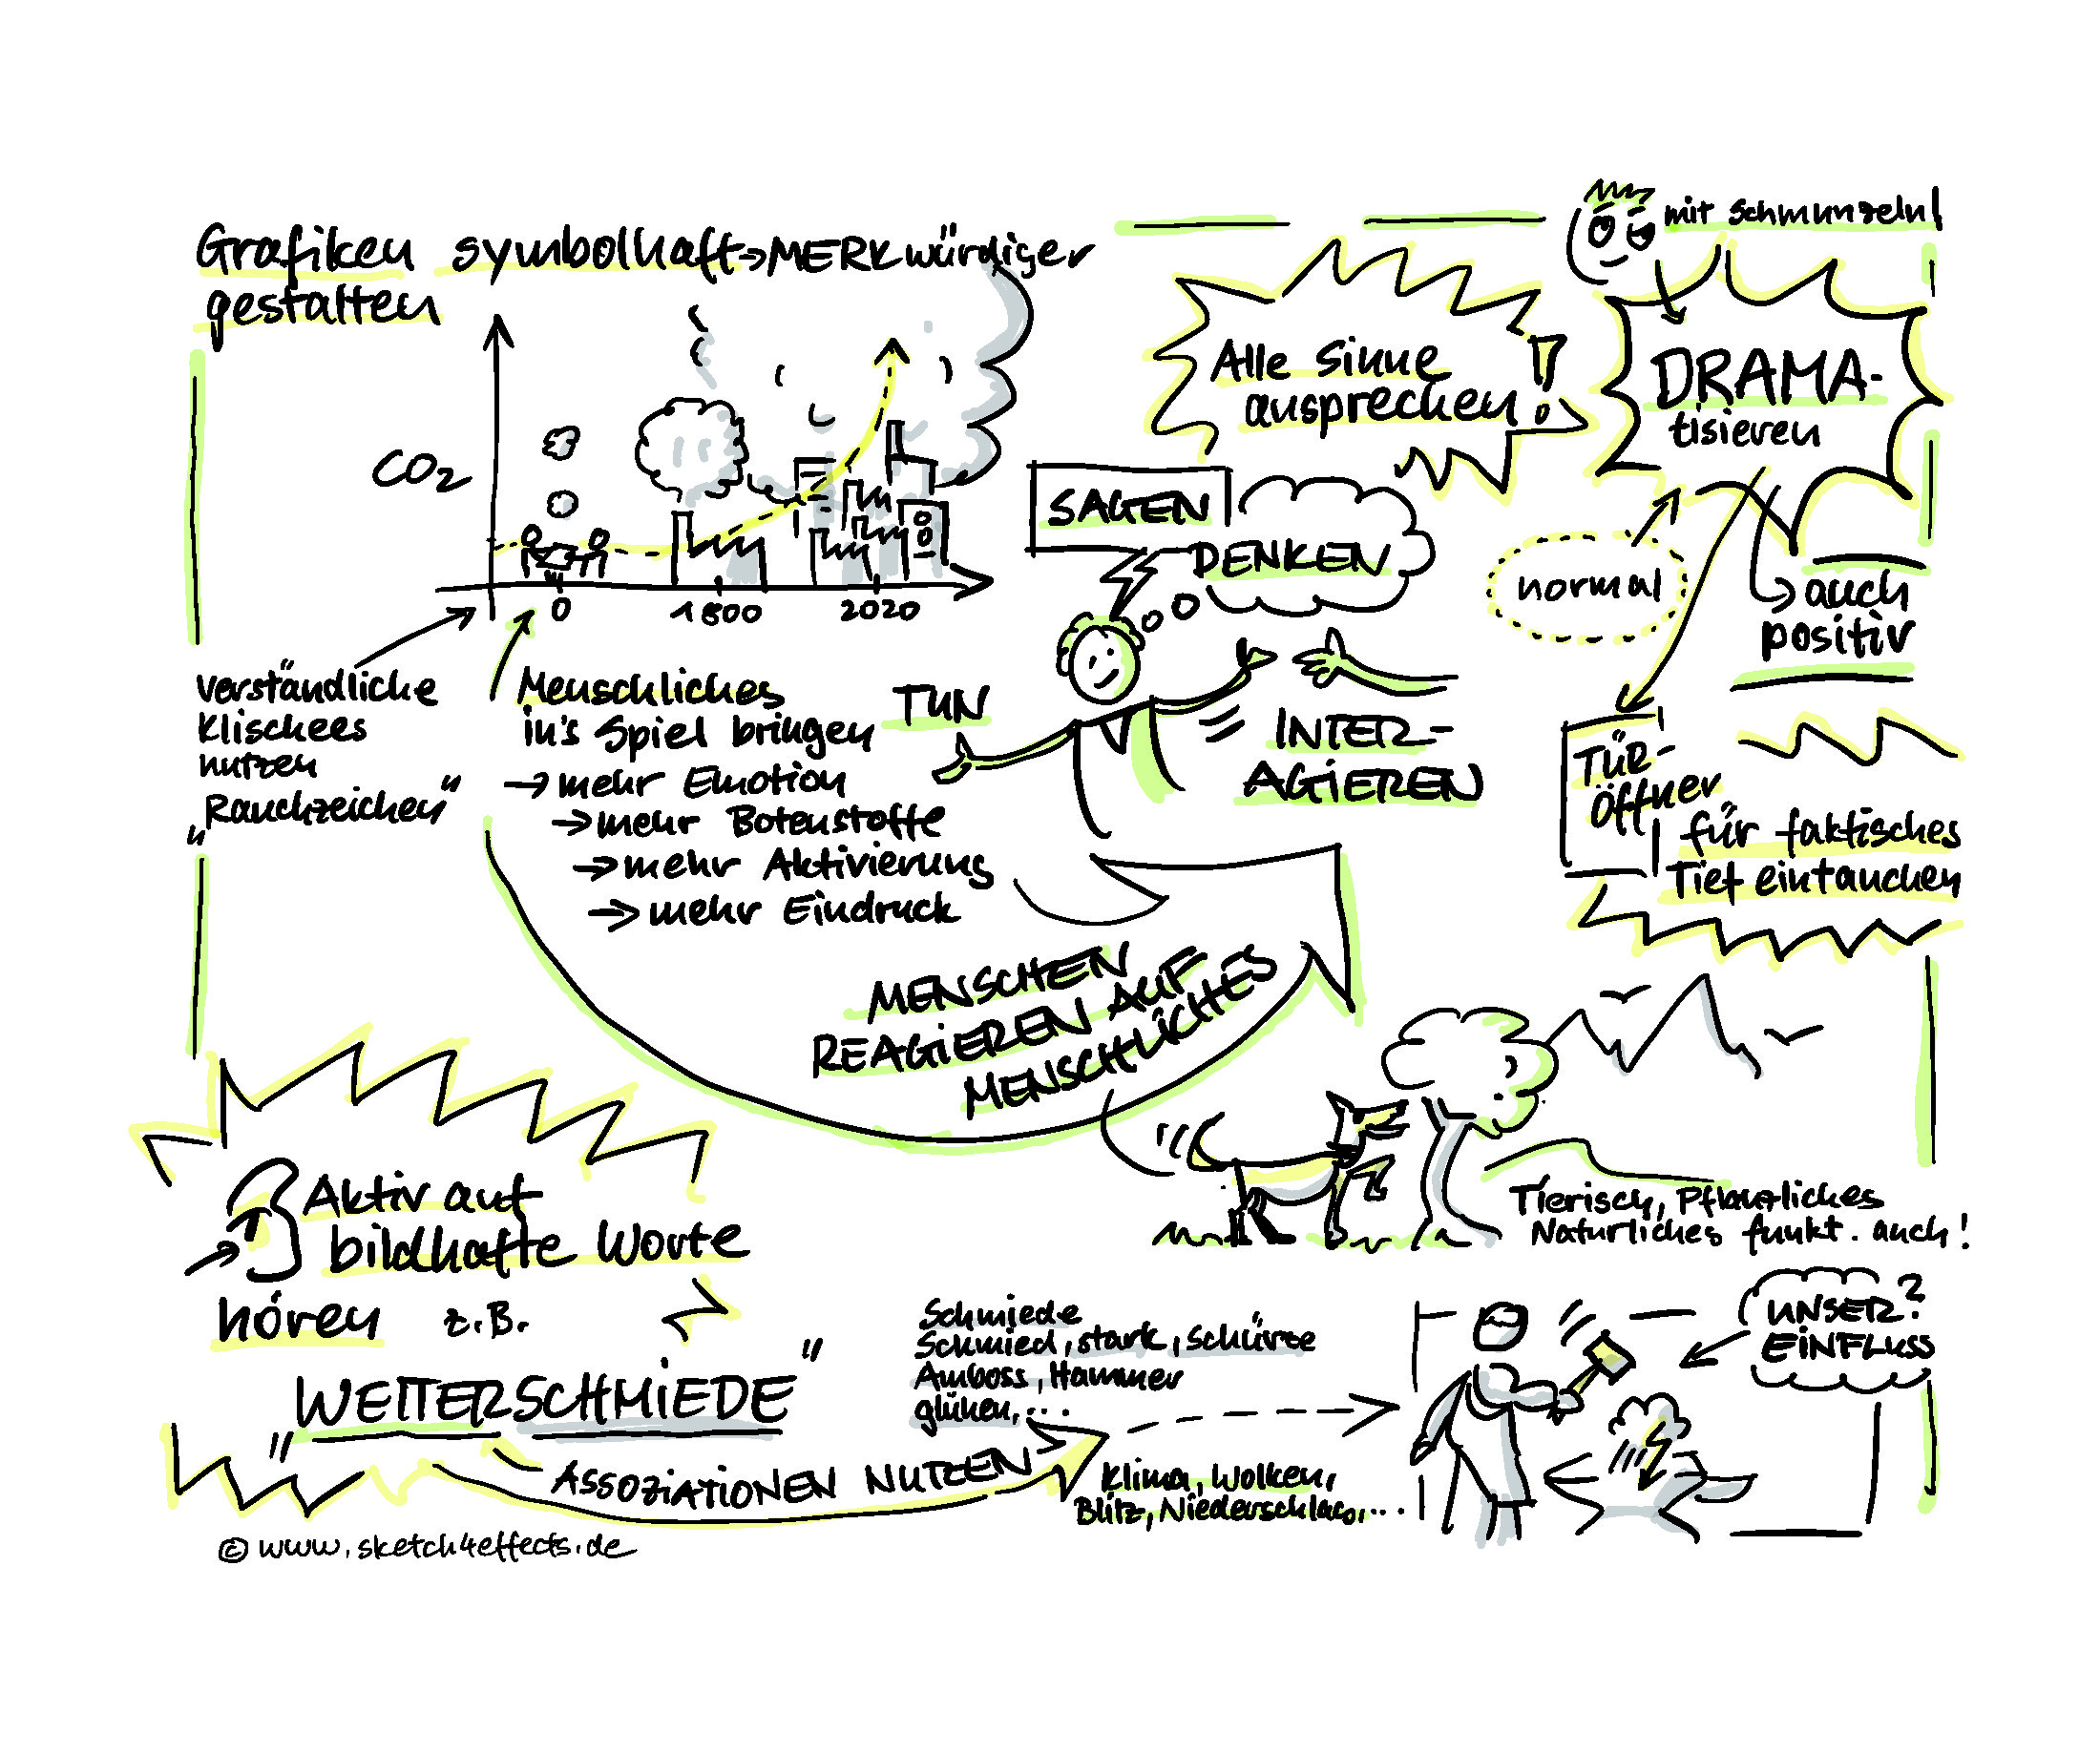 Grafiken symbolhaft → MERKwürdiger
gestalten
CO2
0
1800
2020
verständliche
Klischees
nutzen
„Rauchzeichen“
Menschliches
in's Spiel bringen
→ mehr Emotion
→ mehr Botenstoffe
→ mehr Aktivierung
→ mehr Eindruck
Alle Sinne
ansprechen!
SAGEN
DENKEN
TUN
INTER-
AGIEREN
mit schmunzeln!
DRAMA-
tisieren
normal
auch
positiv
TÜR-
Öffner
für faktisches
Tief eintauchen
MENSCHEN
REAGIEREN AUF
MENSCHLICHES
Tierisch, Pflanzliches
Natürliches funkt. auch!
Aktiv auf
bildhafte Worte
hören z.B.
"WETTERSCHMIEDE"
ASSOZIATIONEN NUTZEN
Schmiede
Schmied, stark, Schürze
Amboss, Hammer
glühen,...
Klima, Wolken,
Blitz, Niederschlag,...
UNSER?
EINFLUSS
© www.sketch4effects.de